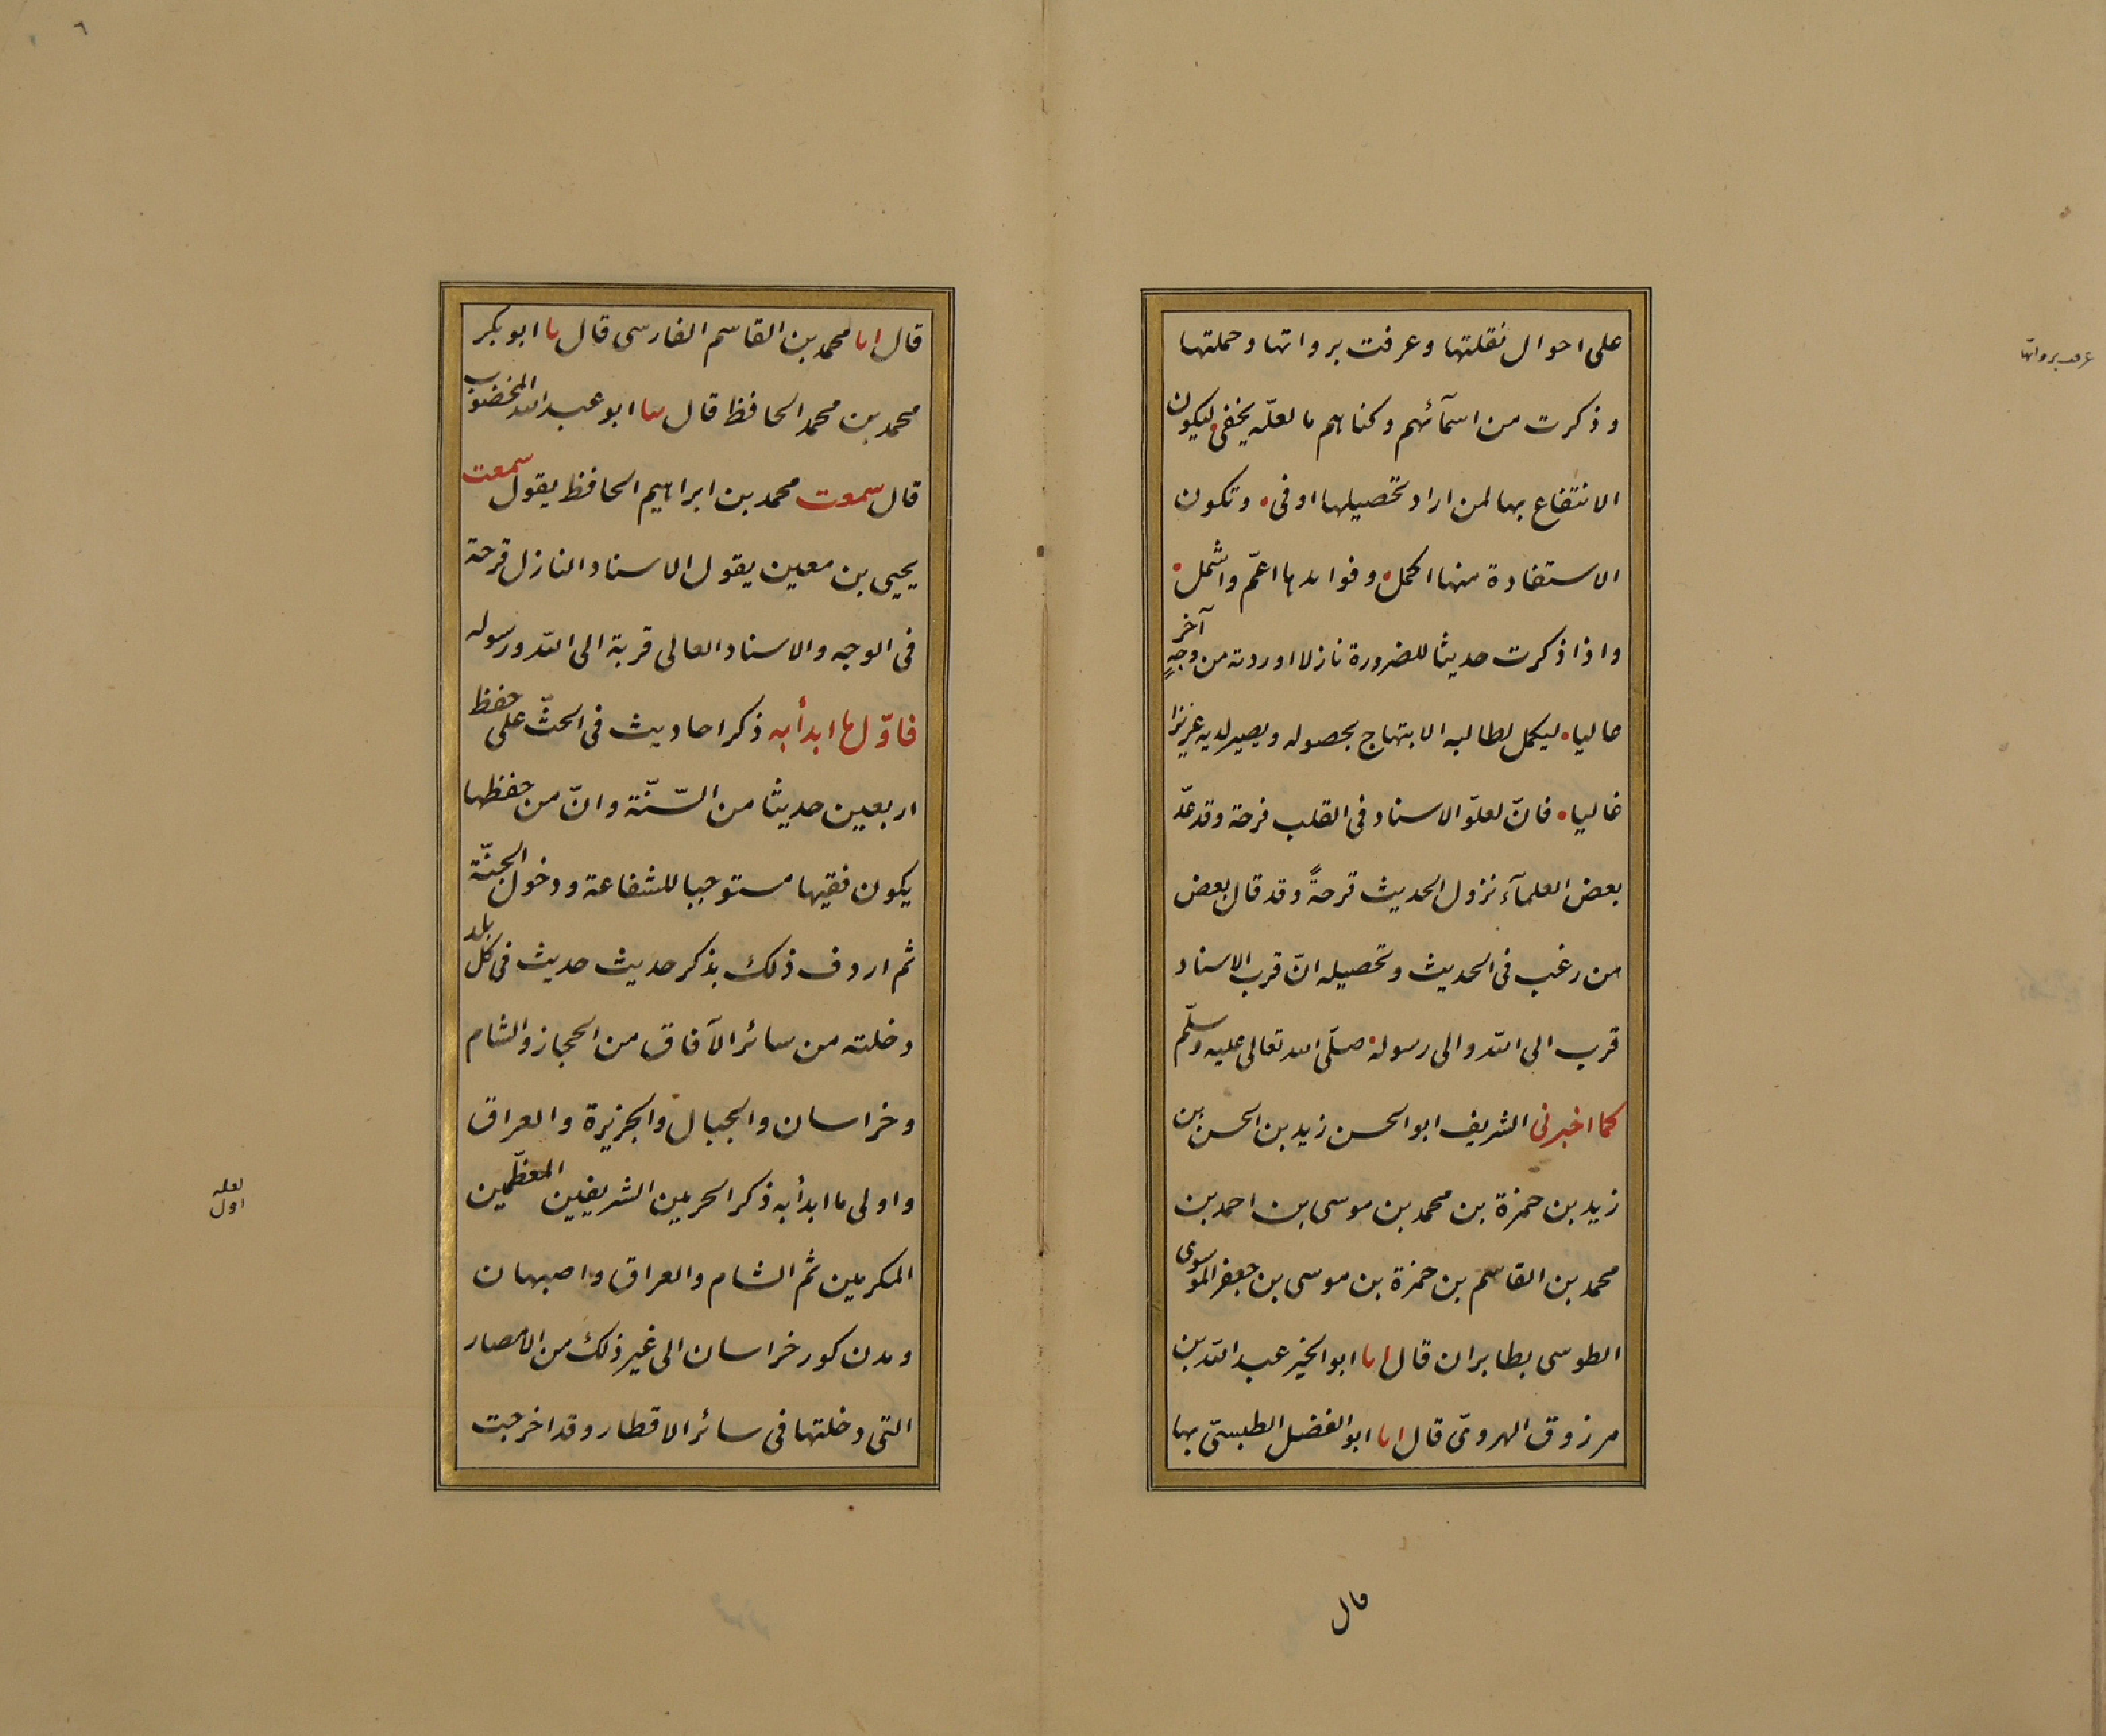 على احوال نقلتها وعرفت برواتها وحملتها
وذكرت من اسمآئهم وكناهم ما لعلّه يخفى ليكون
الانتفاع بها لمن اراد تحصيلها اوفى وتكون
الاستفادة منها اكمل وفوايدها اعمّ واشمل
واذا ذكرت حديثا للضرورة نازلا اوردته من وجهٍ آخر
عاليا ليكمل لطالبه الابتهاج بحصوله ويصير لديه عزيزا
غاليا فانّ لعلوّ الاسناد فى القلب فرحة وقد عدّ
بعض العلمآء نزول الحديث قرحةً وقد قال بعض
من رغب فى الحديث وتحصيله انّ قرب الاسناد
قرب الى اللّه والى رسوله صلّى الله تعالى عليه وسلّم
كما اخبرنى الشريف ابو الحسن زيد بن الحسن بن
زيد بن حمزة بن محمد بن موسى بن احمد بن
محمد بن القاسم بن حمزة بن موسى بن جعفر الموسوى
الطوسى بطابران قال انا ابو الخير عبد اللّه بن
مرزوق الهروىّ قال انا ابو الفضل الطبسىّ بها
قال
عرف برواتها
٦
قال انا محمد بن القاسم الفارسى قال نا ابو بكر
محمد بن محمد الحافظ قال نبا ابو عبد الله المخضوب
قال سمعت محمد بن ابراهيم الحافظ يقول سمعت
يحيى بن معين يقول الاسناد النازل قرحة
فى الوجه والاسناد العالى قربة الى اللّه ورسوله
فاوّل ما ابدأ به ذكر احاديث فى الحثّ على حفظ
اربعين حديثا من السّنّة وانّ من حفظها
يكون فقيها مستوجبا للشفاعة ودخول الجنّة
ثم اردف ذلك بذكر حديث حديث فى كل بلد
دخلته من سائر الآفاق من الحجاز والشام
وخراسان والجبال والجزيرة والعراق
واولى ما ابدأ به ذكر الحرمين الشريفين المعظّمين
المكرمين ثم الشام والعراق واصبهان
ومدن كور خراسان الى غير ذلك من الامصار
التى دخلتها فى سائر الاقطار وقد اخرجت
لعله
اول